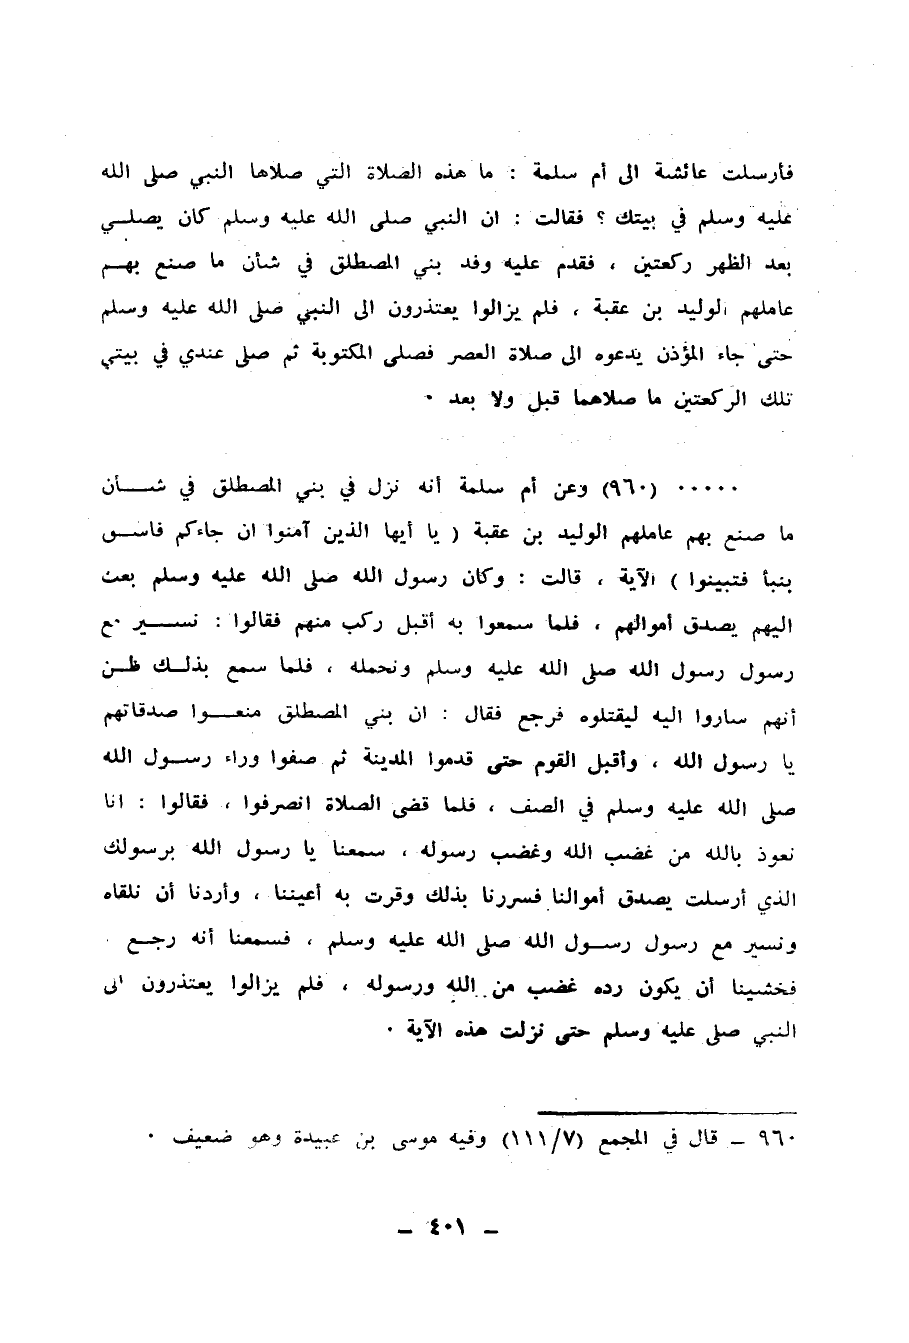 فأرسلت عائشة الى أم سلمة : ما هذه الصلاة التي صلاها النبي صلى الله
عليه وسلم في بيتك ؟ فقالت : ان النبي صلى الله عليه وسلم كان يصلي
بعد الظهر ركعتين ، فقدم عليه وفد بني المصطلق في شأن ما صنع بهم
عاملهم الوليد بن عقبة ، فلم يزالوا يعتذرون الى النبي صلى الله عليه وسلم
حتى جاء المؤذن يدعوه الى صلاة العصر فصلى المكتوبة ثم صلى عندي في بيتي
تلك الركعتين ما صلاهما قبل ولا بعد ٠
٠٠٠٠٠ (٩٦٠) وعن أم سلمة أنه نزل في بني المصطلق في شـــأن
ما صنع بهم عاملهم الوليد بن عقبة ( يا أيها الذين آمنوا ان جاءكم فاسـق
بنبأ فتبينوا ) الآية ، قالت : وكان رسول الله صلى الله عليه وسلم بعث
اليهم يصدق أموالهم ، فلما سمعوا به أقبل ركب منهم فقالوا : نســـير مع
رسول رسول الله صلى الله عليه وسلم ونحمله ، فلما سمع بذلـك ظـن
أنهم ساروا اليه ليقتلوه فرجع فقال : ان بني المصطلق منعـــوا صدقاتهم
يا رسول الله ، وأقبل القوم حتى قدموا المدينة ثم صفوا وراء رسـول الله
صلى الله عليه وسلم في الصف ، فلما قضى الصلاة انصرفوا ، فقالوا : انا
نعوذ بالله من غضب الله وغضب رسوله ، سمعنا يا رسول الله برسولك
الذي أرسلت يصدق أموالنا فسررنا بذلك وقرت به أعيننا ، وأردنا أن نلقاه
ونسير مع رسول رسـول الله صلى الله عليه وسلم ، فسمعنا أنه رجـع
فخشينا أن يكون رده غضب من الله ورسوله ، فلم يزالوا يعتذرون الى
النبي صلى عليه وسلم حتى نزلت هذه الآية ٠
٩٦٠ ـ قال في المجمع (١١١/٧) وفيه موسى بن عبيدة وهو ضعيف ٠
ـ ٤٠١ ـ